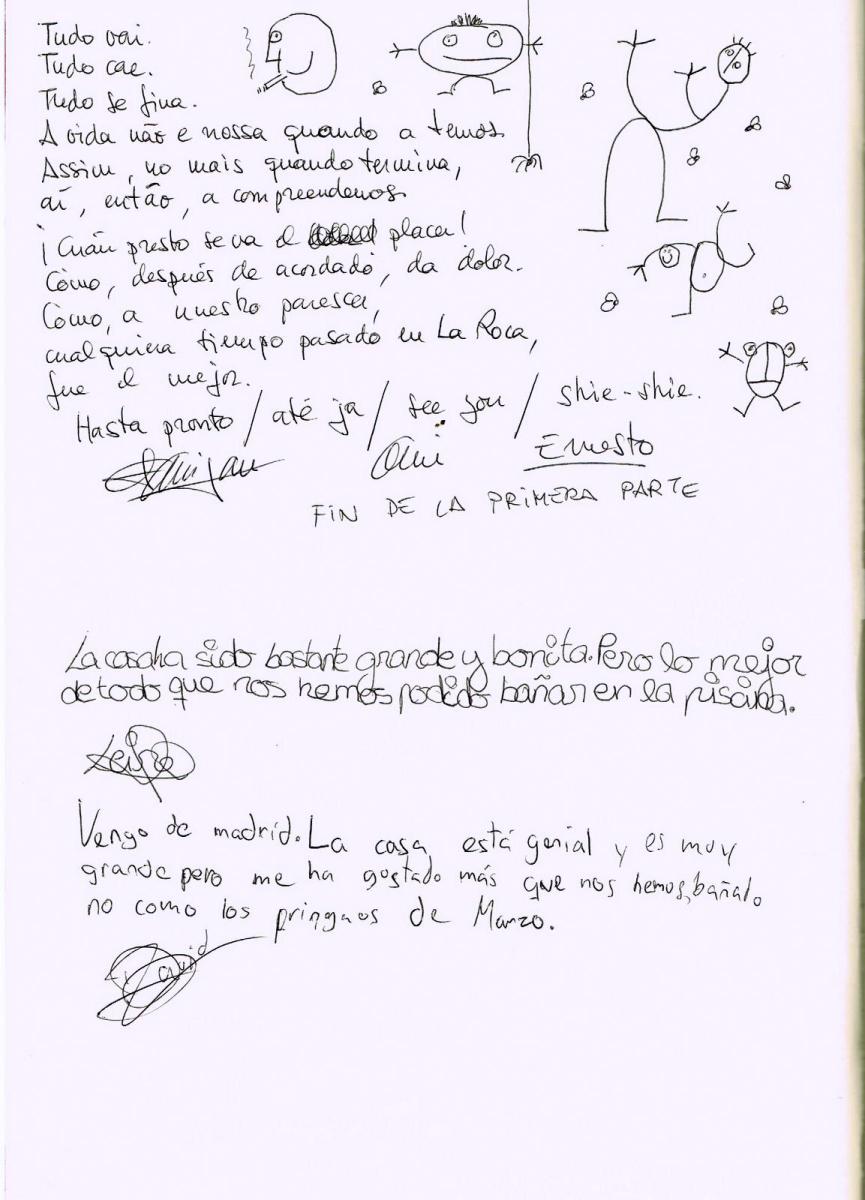 Tudo vai.
Tudo cae.
Tudo se fina.
A vida não e nossa quando a temos
Assim, no mais quando termina,
aí, então, a compreendemos.
¡Cuán presto se va el placer!
Cómo, después de acordado, da dolor.
Cómo, a nuestro parescer,
cualquiera tiempo pasado en La Roca,
fue el mejor.
Hasta pronto / até ja / see you / shie-shie.
Ernesto
FIN DE LA PRIMERA PARTE
La casa ha sido bastante grande y bonita. Pero lo mejor
de todo que nos hemos podido bañar en la piscina.
Vengo de madrid. La casa está genial y es muy
grande pero me ha gustado más que nos hemos bañado
no como los pringaos de Marzo.
David